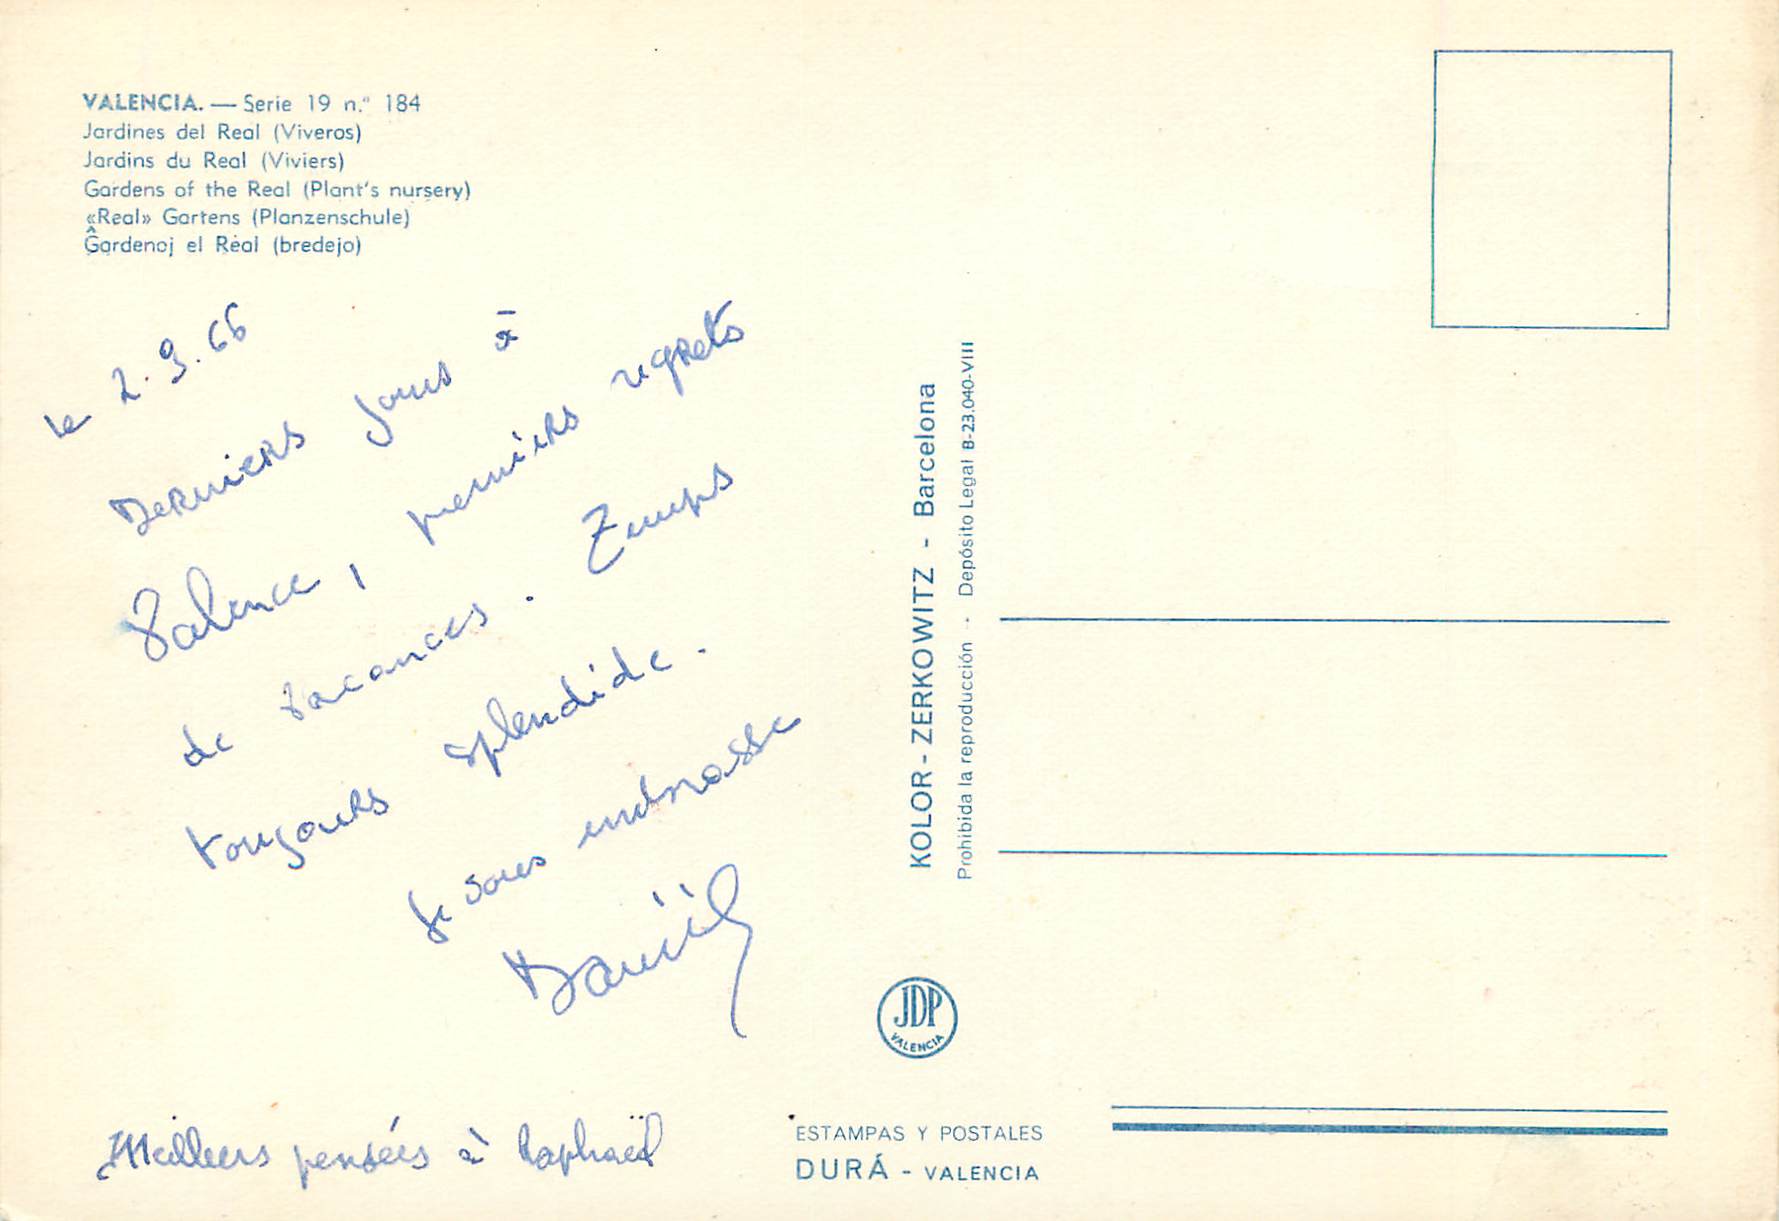 VALENCIA. — Serie 19 n.º 184
Jardines del Real (Viveros)
Jardins du Real (Viviers)
Gardens of the Real (Plant's nursery)
«Real» Gartens (Planzenschule)
Ĝardenoj el Real (bredejo)
le 2.9.66
Derniers jours à
Valence, premiers regrets
de vacances. Temps
toujours splendide.
Je vous embrasse
Meilleurs pensées à Raphaël
KOLOR-ZERKOWITZ - Barcelona
Prohibida la reproducción - Depósito Legal B-23.040-VIII
JDP
VALENCIA
ESTAMPAS Y POSTALES
DURÁ - VALENCIA